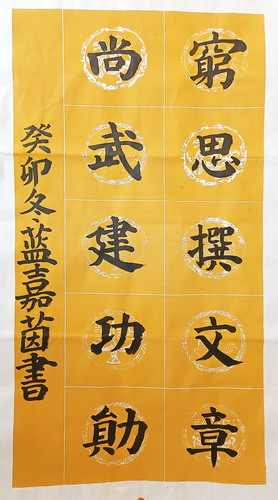 窮思撰文章
尚武建功勛
癸卯冬蓝嘉茵書